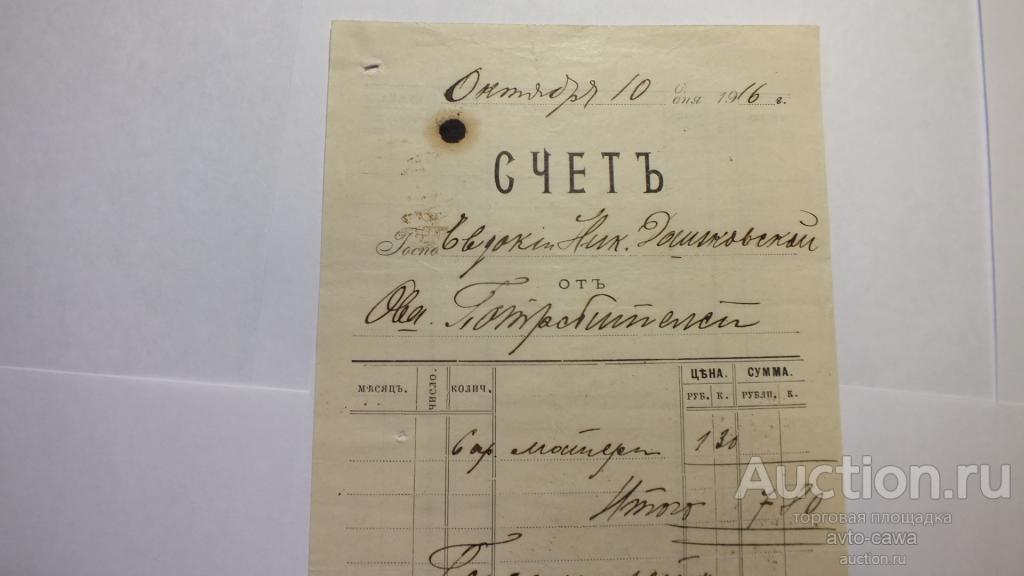 Октября 10 дня 1916 г.
СЧЕТЪ
Госпо Евдокіи Ник. Дашковской
отъ
Ова. Потребителей
МѢСЯЦЪ. ЧИСЛО. КОЛИЧ. ЦѢНА. СУММА.
РУБ. К. РУБЛИ. К.
6 ар материи 1 30
Итого 7 80
Auction.ru
торговая площадка
avto-cawa
auction.ru